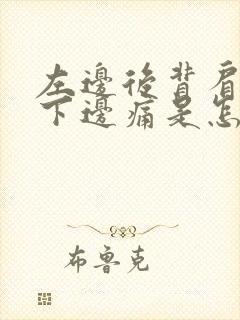 左邊後背肩
下邊痛是怎
布魯克